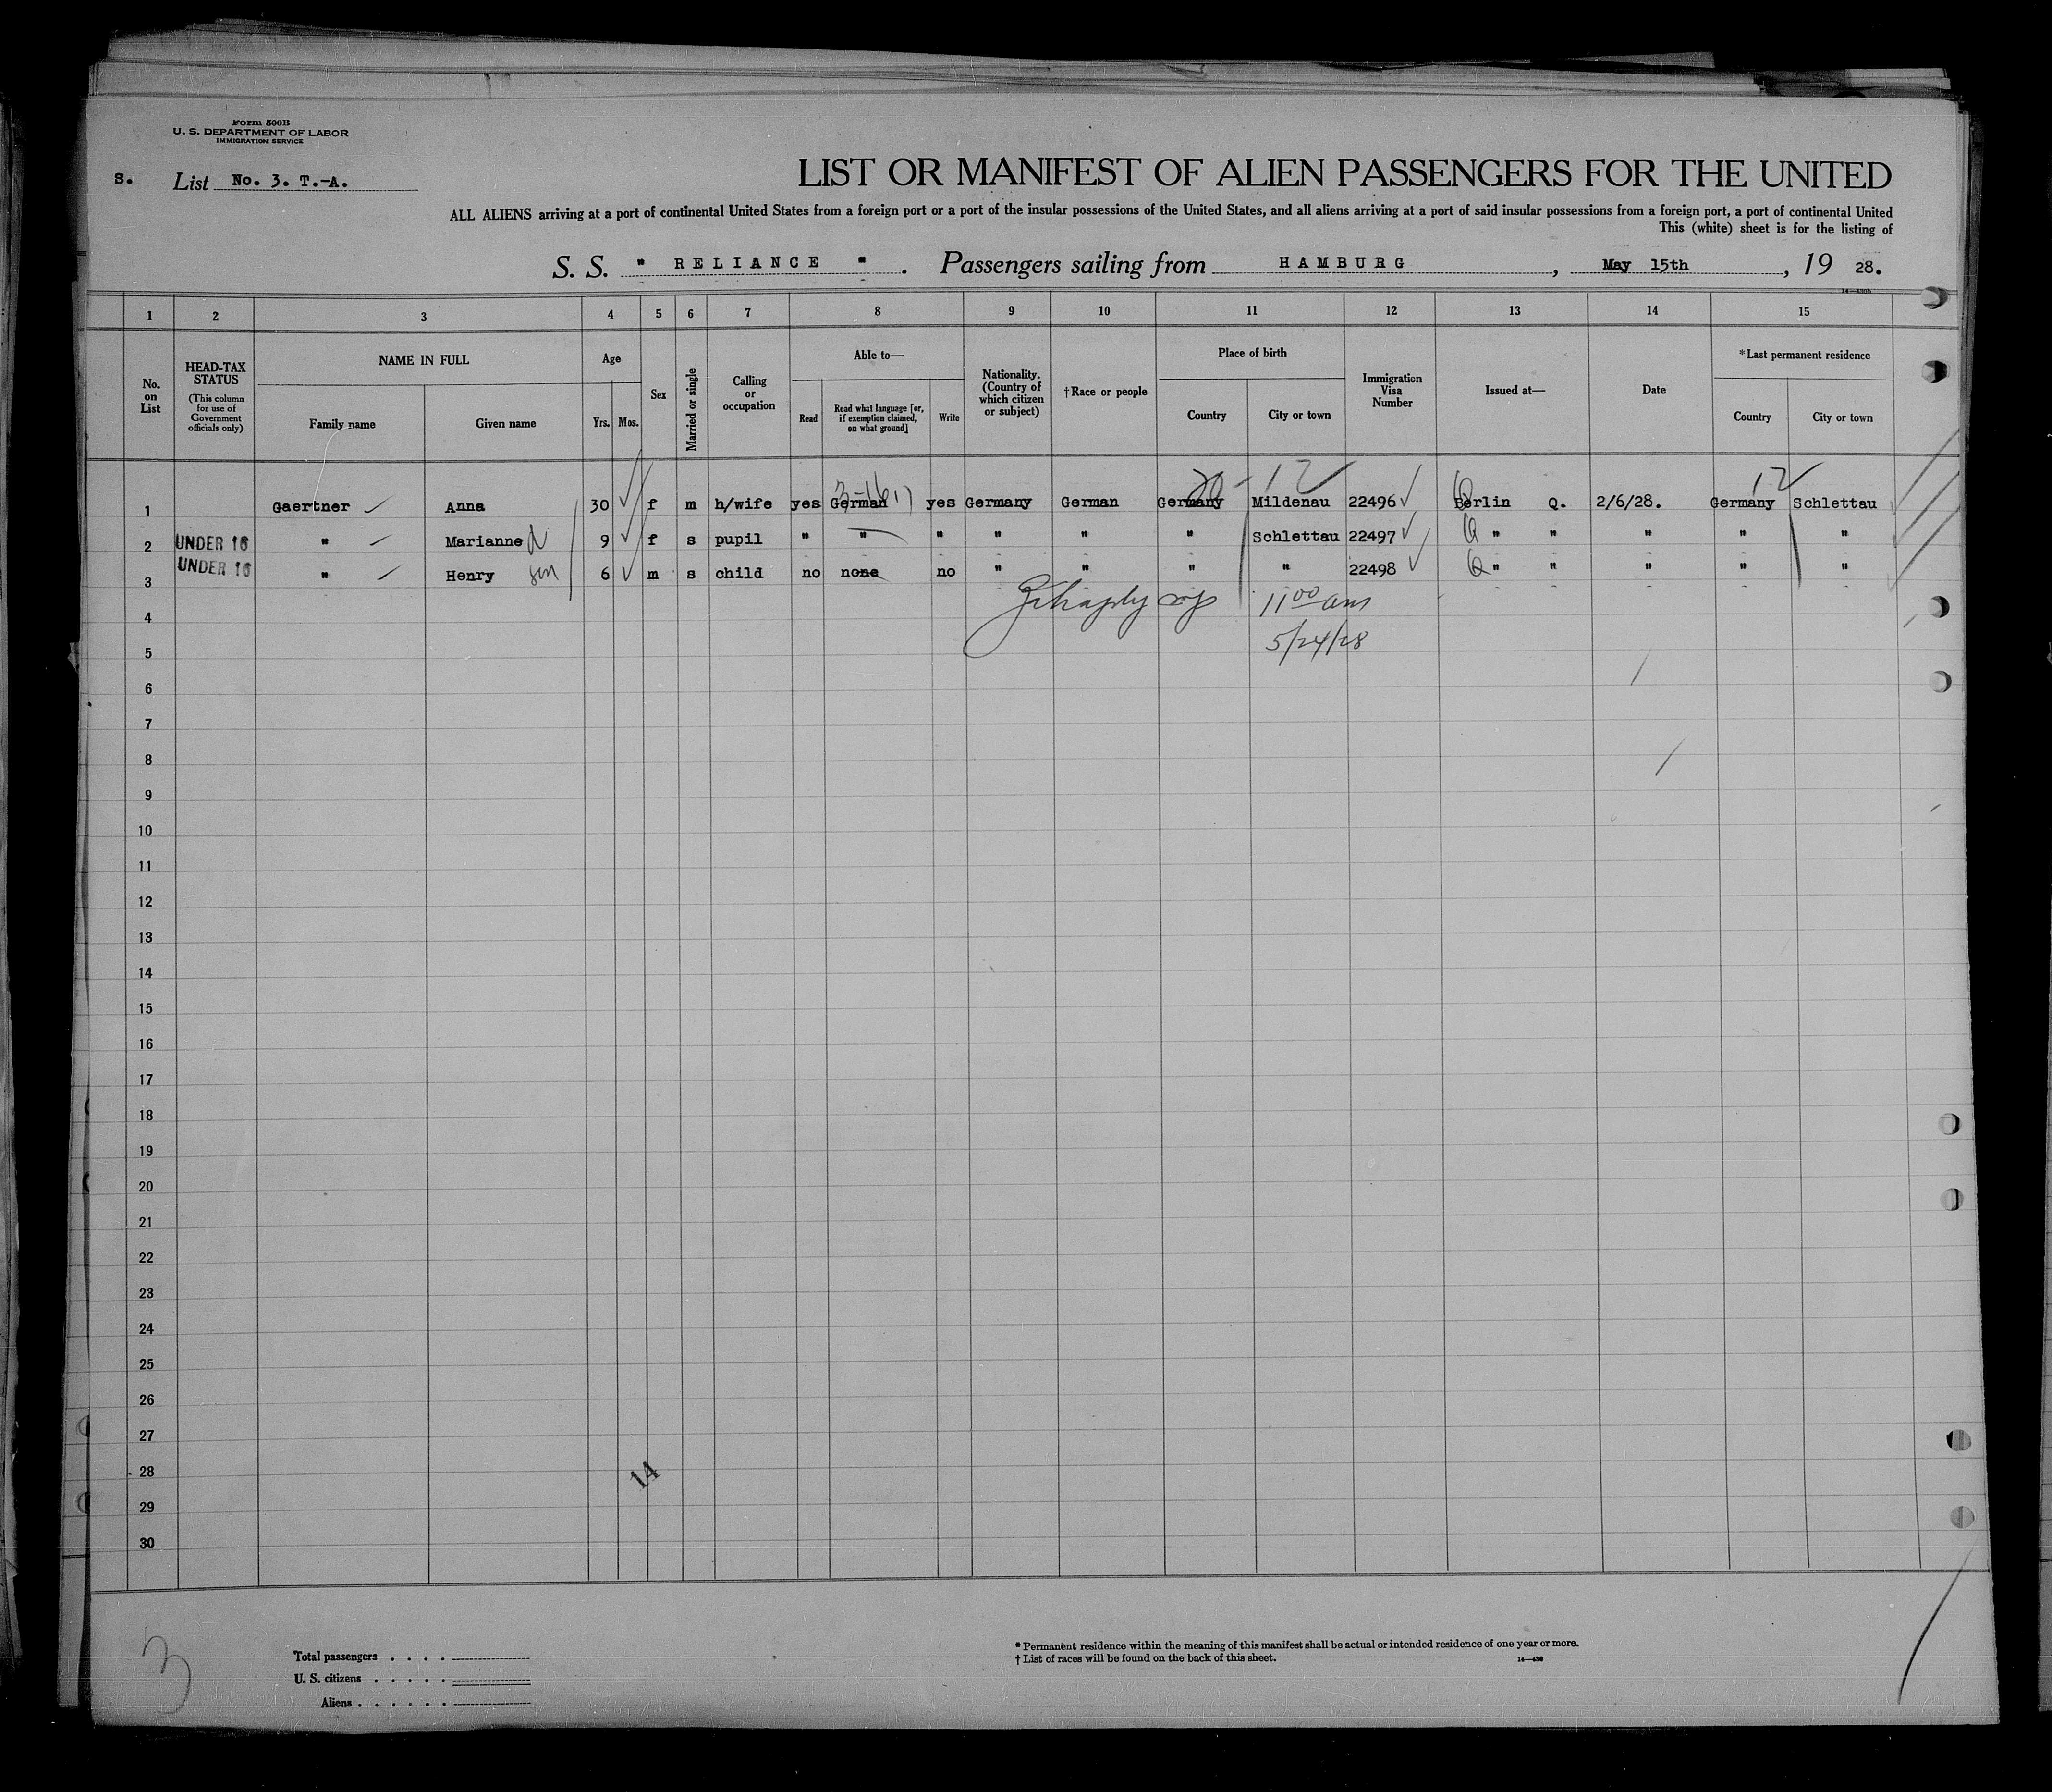 Form 500B
U. S. DEPARTMENT OF LABOR
IMMIGRATION SERVICE
S. List No. 3. T.-A.
LIST OR MANIFEST OF ALIEN PASSENGERS FOR THE UNITED
ALL ALIENS arriving at a port of continental United States from a foreign port or a port of the insular possessions of the United States, and all aliens arriving at a port of said insular possessions from a foreign port, a port of continental United
This (white) sheet is for the listing of
S. S. " RELIANCE " . Passengers sailing from HAMBURG , May 15th , 19 28.
1 2 3 4 5 6 7 8 9 10 11 12 13 14 15
No. on List
HEAD-TAX STATUS (This column for use of Government officials only)
NAME IN FULL
Family name Given name
Age
Yrs. Mos.
Sex
Married or single
Calling or occupation
Able to—
Read Read what language [or, if exemption claimed, on what ground] Write
Nationality. (Country of which citizen or subject)
†Race or people
Place of birth
Country City or town
Immigration Visa Number
Issued at—
Date
*Last permanent residence
Country City or town
20-12 12
1 Gaertner Anna 30 f m h/wife yes German yes Germany German Germany Mildenau 22496 Berlin Q. 2/6/28. Germany Schlettau
2 UNDER 16 " Marianne 9 f s pupil " " " " " " Schlettau 22497 Q " " " " "
3 UNDER 16 " Henry son 6 m s child no none no " " " " 22498 Q " " " " "
4 11 00 am
5 5/24/28
6
7
8
9
10
11
12
13
14
15
16
17
18
19
20
21
22
23
24
25
26
27
28 14
29
30
3
Total passengers . . . .
U. S. citizens . . . . .
Aliens . . . . . .
* Permanent residence within the meaning of this manifest shall be actual or intended residence of one year or more.
† List of races will be found on the back of this sheet.
14—430